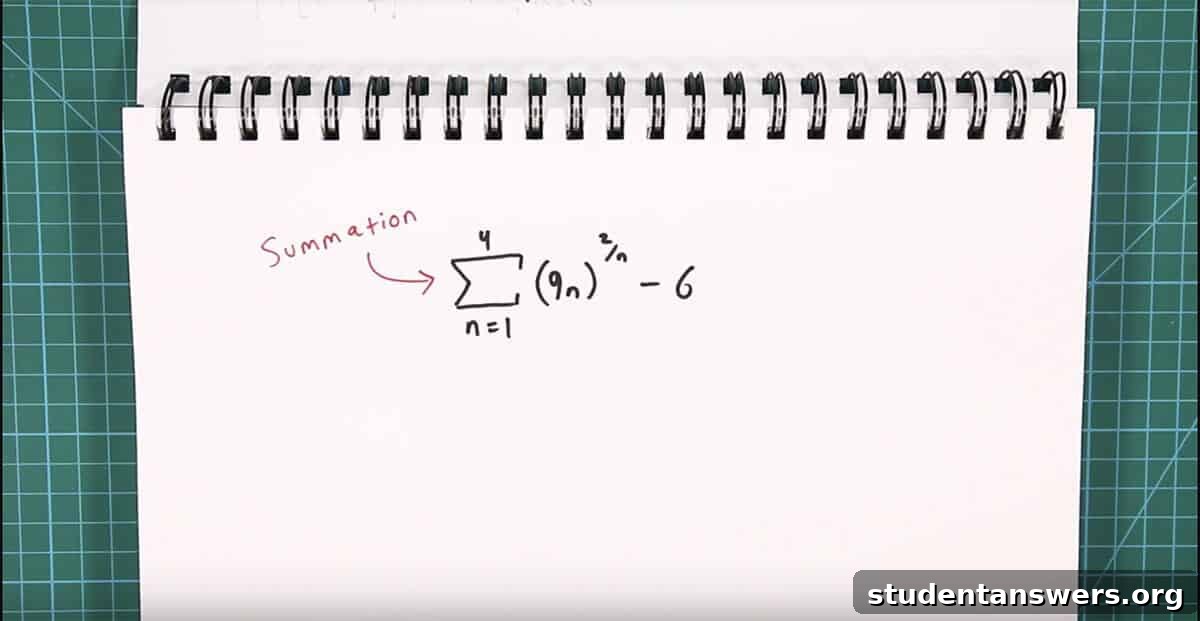 Summation
4
∑ (9n)^2/n - 6
n=1
studentanswers.org